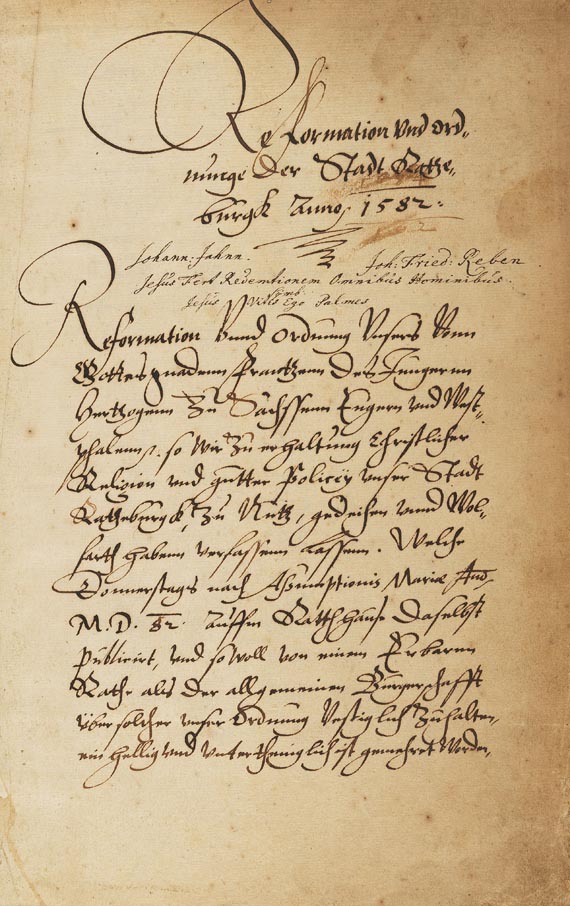 Reformation vnd Ord-
nunge der Stadt Ratze-
burgk Anno 1582.
Johann: Jahnn. Joh: Fried: Reben
Jesus Fert Redemtionem Omnibus Hominibus.
Jesus Ego Palmes
Reformation vnnd Ordnung Vnsers Vonn
Gottes gnadenn Frantzenn des Jüngernn
Hertzogenn zu Sachssenn Engern vnd West-
phalenn. so wir zu erhaltung Christlicher
Religion vnd gutter Policeÿ vnser Stadt
Ratzeburgk, zu Nutz, gedeihen vnnd Wol-
farth habenn verfassenn lassenn. Welche
Donnerstags nach Assumptionis Mariæ Año
M.D. 82. auffm Rathhause daselbst
Publicirt, vnd so woll von einem Erbarnn
Rathe als der allgemeinen Burgerschafft
über solcher vnser Ordnung Vestiglich zuhalten,
einhellig vnd Vntertheniglich ist Worden,